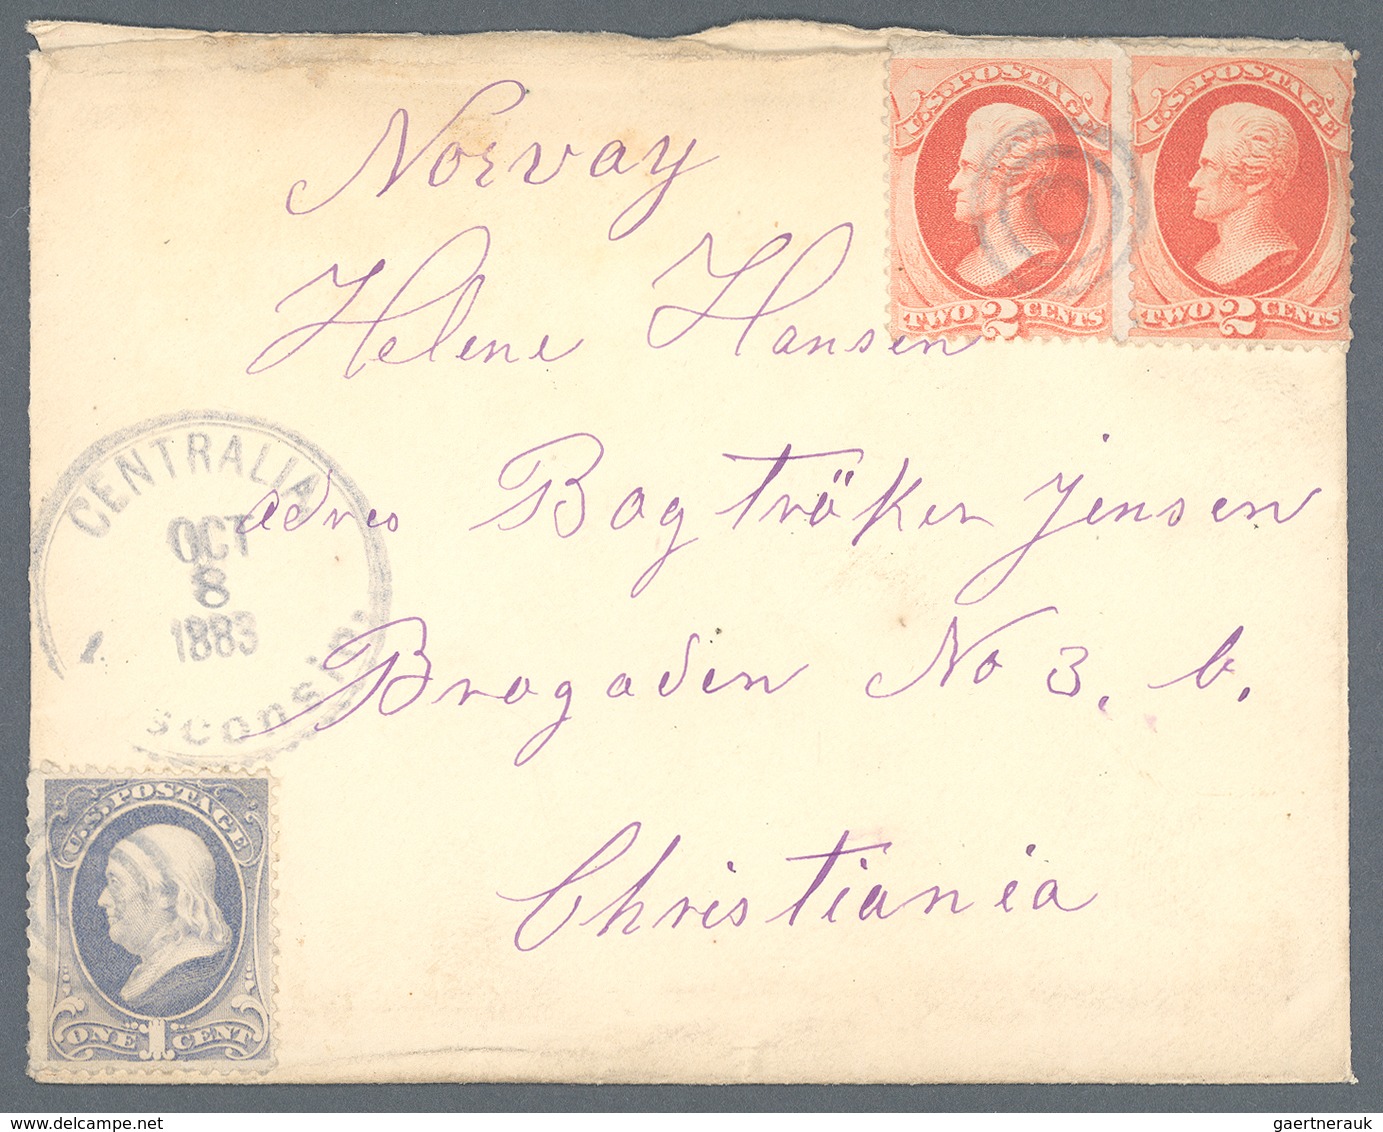 Norvay
U.S. POSTAGE
TWO 2 CENTS
U.S. POSTAGE
TWO 2 CENTS
Helene Hansen
CENTRALIA
OCT
8
1883
sconsin.
adres Bogtröker Jensen
Brogaden No 3. b.
Christiania
U.S. POSTAGE
ONE 1 CENT
gaertnerauk / delcampe.net